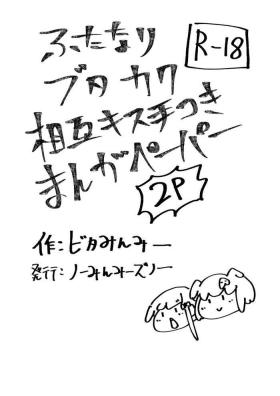 ふたなり
R-18
ブタ カク
相互キス手つき
まんがペーパー
2P
作:ビタみんみー
発行:ノーみんみーズリー